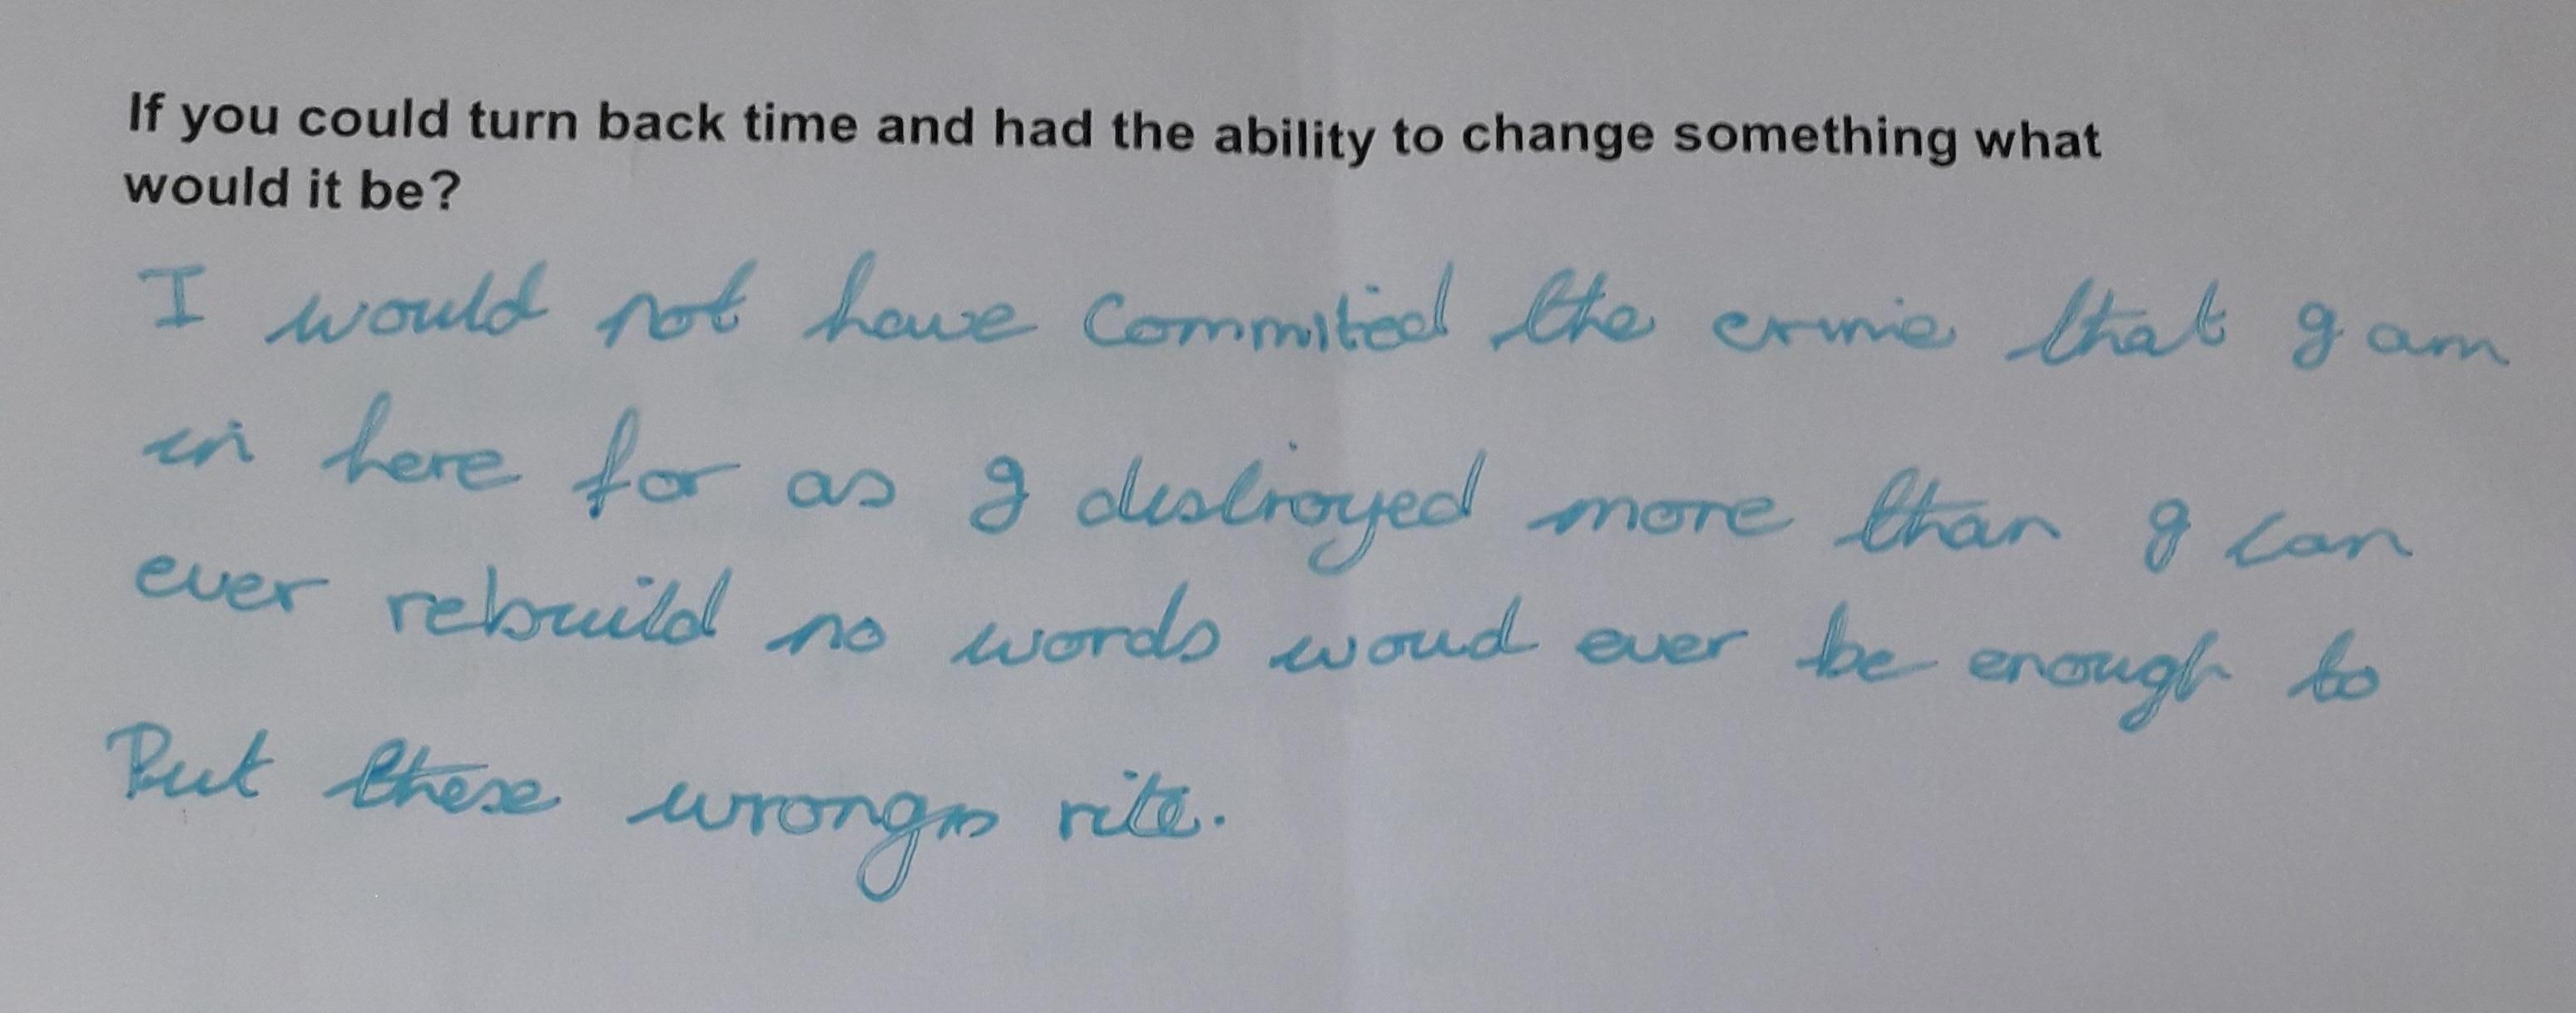 If you could turn back time and had the ability to change something what
would it be?
I would not have Commited the crime that I am
in here for as I destroyed more than I can
ever rebuild no words woud ever be enough to
Put these wrongs rite.